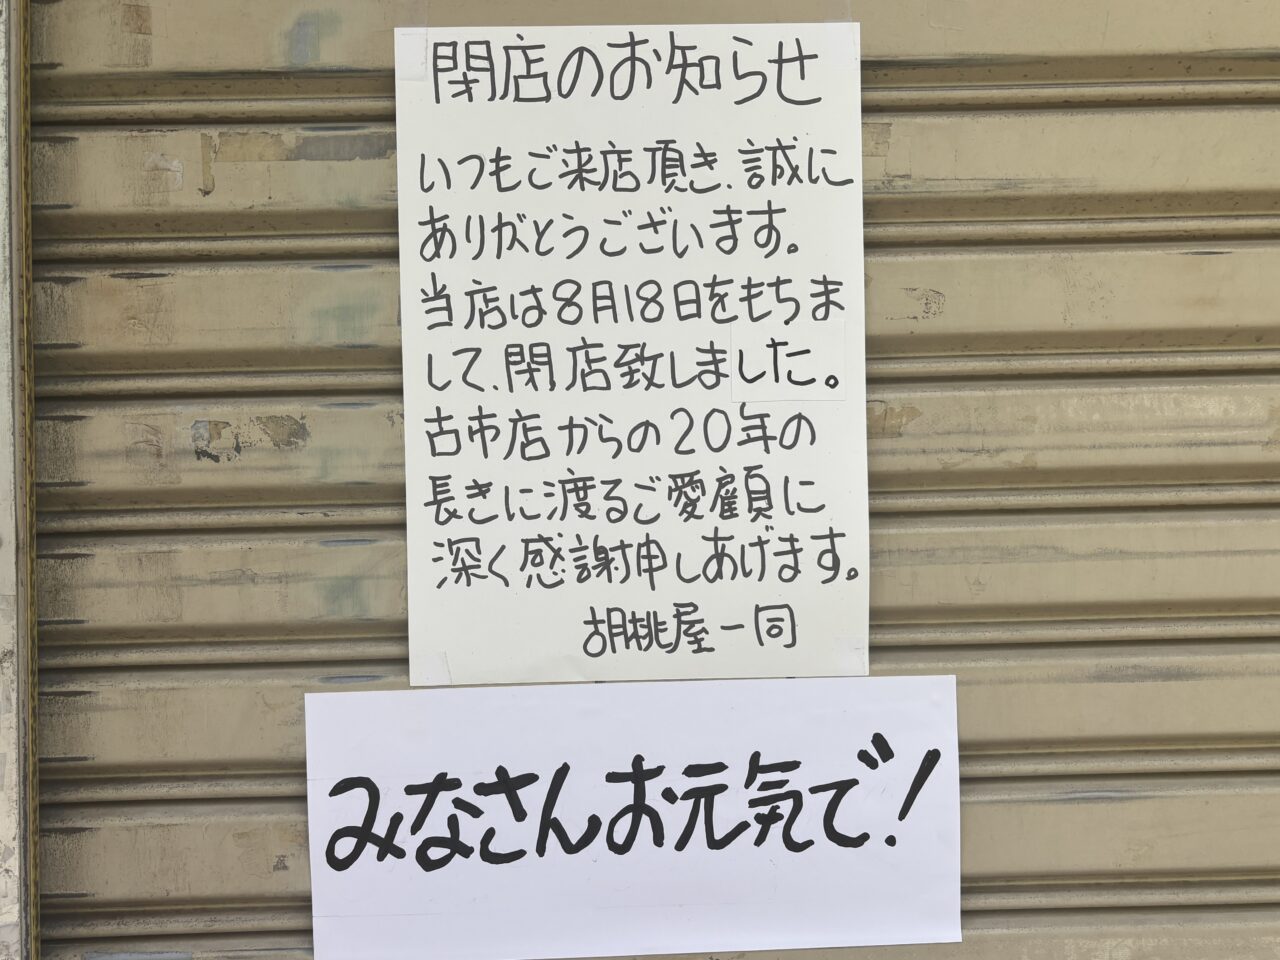 閉店のお知らせ
いつもご来店頂き、誠に
ありがとうございます。
当店は8月18日をもちま
して、閉店致しました。
古市店からの20年の
長きに渡るご愛顧に
深く感謝申しあげます。
胡桃屋一同
みなさんお元気で!